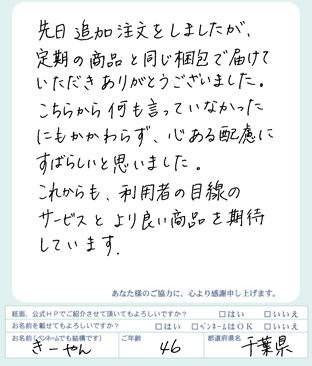 先日追加注文をしましたが、
定期の商品と同じ梱包で届けて
いただきありがとうございました。
こちらから何も言っていなかった
にもかかわらず、心ある配慮に
すばらしいと思いました。
これからも、利用者の目線の
サービスとより良い商品を期待
しています.
あなた様のご協力に、心より感謝申し上げます。
紙面、公式HPでご紹介させて頂いてもよろしいですか? □はい □いいえ
お名前を載せてもよろしいですか? □はい □ペンネームはOK □いいえ
お名前(ペンネームでも結構です) きーやん ご年齢 46 都道府県名 千葉県